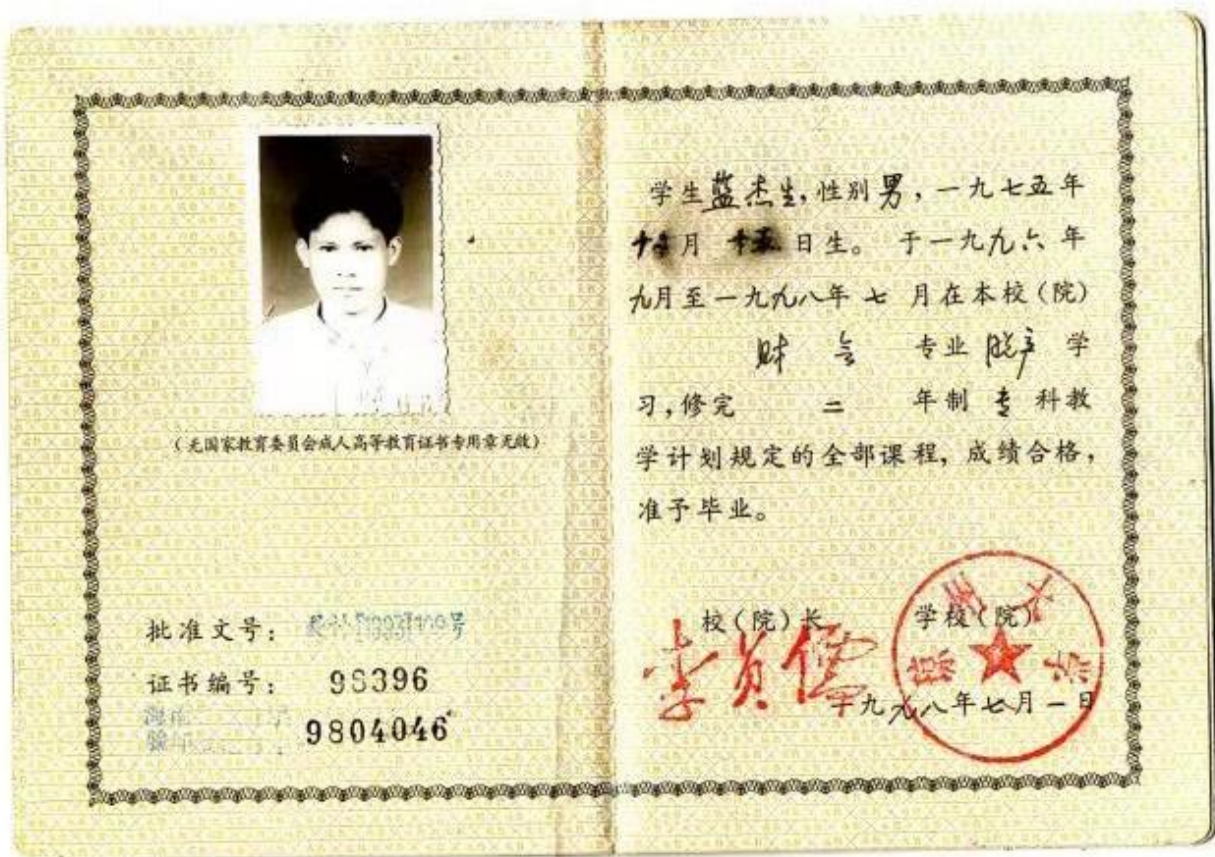 (无国家教育委员会成人高等教育证书专用章无效)
批准文号:
证书编号: 98396
9804046
学生蓝杰生,性别男,一九七五年
月 日生。 于一九九六年
九月至一九九八年 七 月在本校(院)
财会 专业 脱产 学
习,修完 二 年制 专 科教
学计划规定的全部课程,成绩合格,
准予毕业。
校(院)长 学校(院)
李
一九九八年七月一日